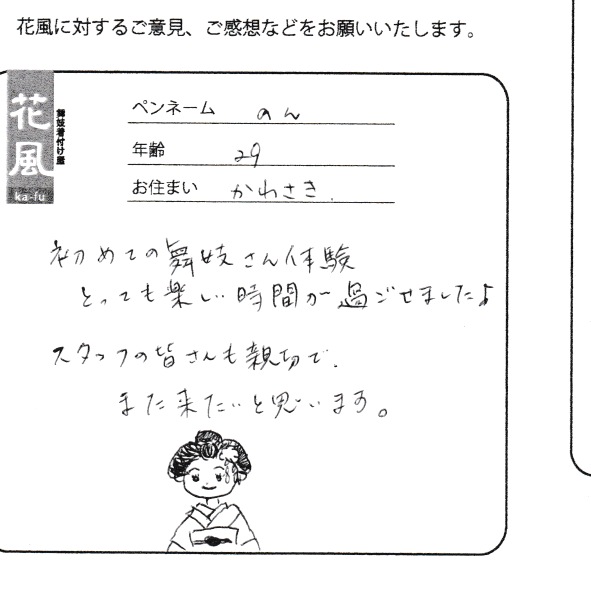 花風に対するご意見、ご感想などをお願いいたします。
花風
舞妓着付け屋
ka-fu
ペンネーム のん
年齢 29
お住まい かわさき.
初めての舞妓さん体験
とっても楽しい時間が過ごせました♪
スタッフの皆さんも親切で.
また来たいと思います。